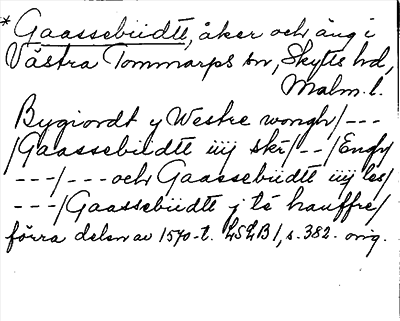 * Gaassebüdtt, åker och äng i
Västra Tommarps sn, Skytts hd,
Malm. l.
Bygiordt y Westre wongh/---
/Gaassebüdtt iiij skr/--/Engh/
---/---och Gaassebüdtt iiij les/
---/Gaassebüdtt j té hauffre/
förra delen av 1570-t. LSLB 1, s. 382. orig.